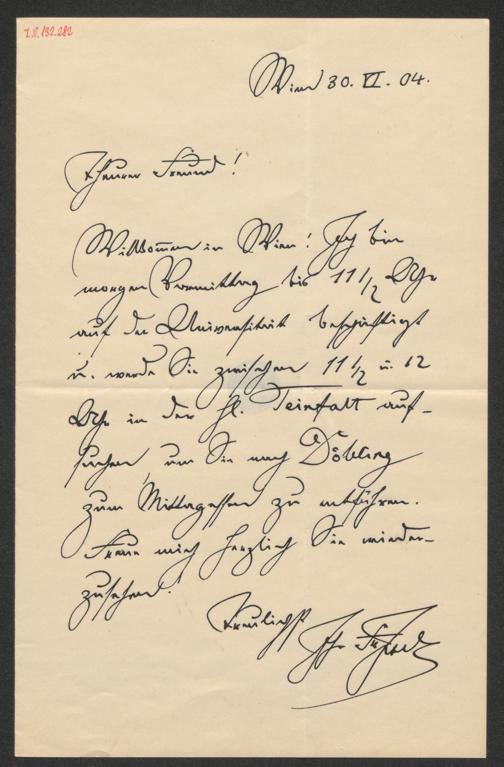 I.N. 132.282
Wien 30. VI. 04.
Theurer Freund!
Willkommen in Wien! Ich bin
morgen Vormittag bis 11 1/2 Uhr
auf der Universität beschäftigt
u. werde Sie zwischen 11 1/2 u. 12
Uhr in der hl. Teinfalt auf-
suchen, um Sie nach Döbling
zum Mittagessen zu entführen.
Freue mich herzlich Sie wieder-
zusehen!
Treulichst